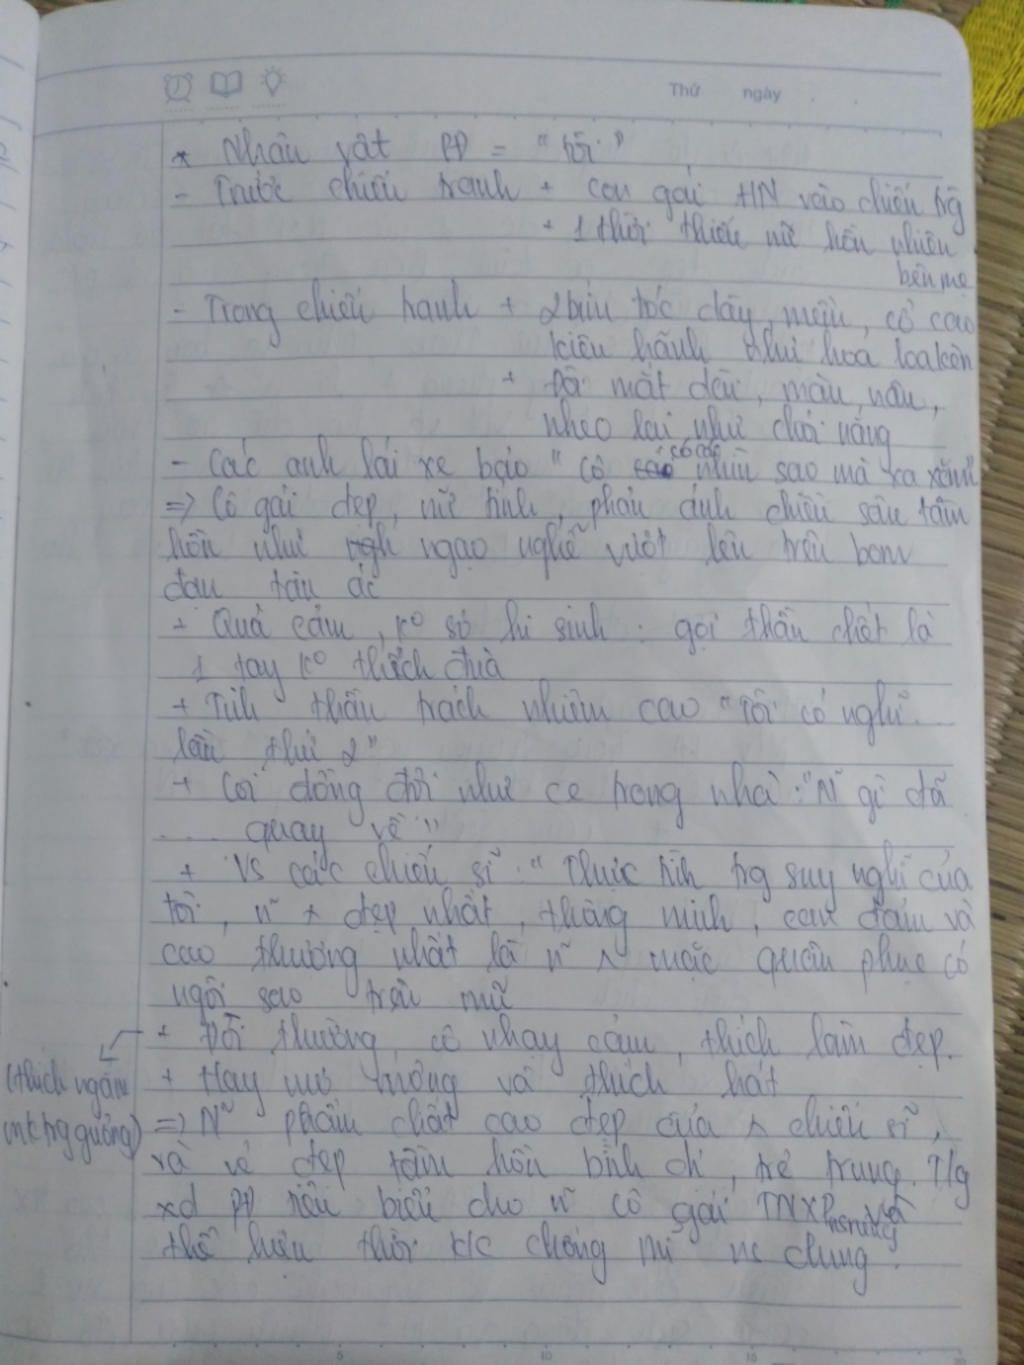 Thứ ngày
* Nhân vật PĐ = "tôi"
- Trước chiến tranh + con gái HN vào chiến trg
+ 1 thời thiếu nữ hồn nhiên
bên mẹ
- Trong chiến tranh + 2 bím tóc dày, mềm, cổ cao
kiêu hãnh như hoa loa kèn
+ Đôi mắt dài, màu nâu,
nheo lại như chói nắng
- Các anh lái xe bảo "cô có cái nhìn sao mà xa xăm"
=> Cô gái đẹp, nữ tính, phản ánh chiều sâu tâm
hồn như ngạo nghễ vượt lên trên bom
đạn tàn ác
+ Quả cảm, ko sợ hi sinh: gọi thần chết là
1 tay ko thích đùa
+ Tinh thần trách nhiệm cao "Tôi có nghĩ...
lần thứ 2"
+ Coi đồng đội như ce trong nhà: "N~ gì đã
.... quay về"
+ Vs các chiến sĩ: "Thực tình trg suy nghĩ của
tôi, n~ ^ đẹp nhất, thông minh, can đảm và
cao thượng nhất là n~ ^ mặc quân phục có
ngôi sao trên mũ
+ Đời thường, cô nhạy cảm, thích làm đẹp.
(thích ngắm
mk trg gương)
+ Hay mơ mộng và thích hát
=> N~ phẩm chất cao đẹp của ^ chiến sĩ,
và vẻ đẹp tâm hồn bình dị, trẻ trung. T/g
xd PĐ tiêu biểu cho n~ cô gái TNXP và
thế hiện thời k/c chống mĩ nc chung.